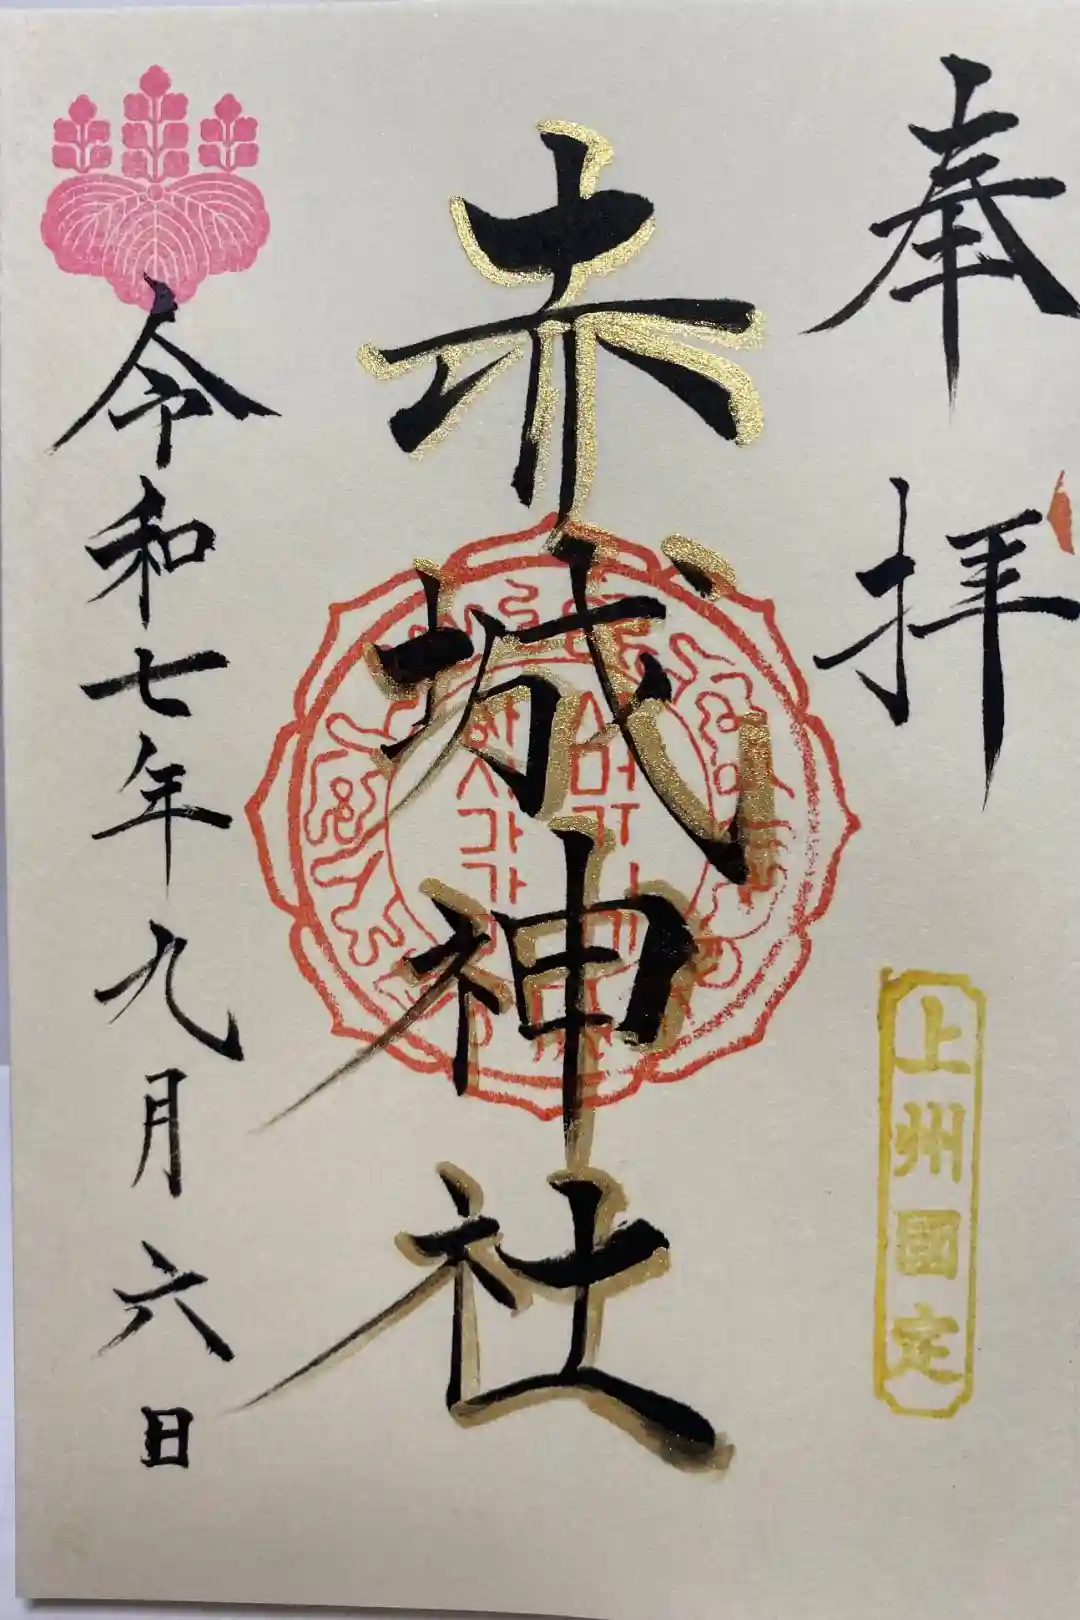 奉拝
上州國定
赤城神社
令和七年九月六日